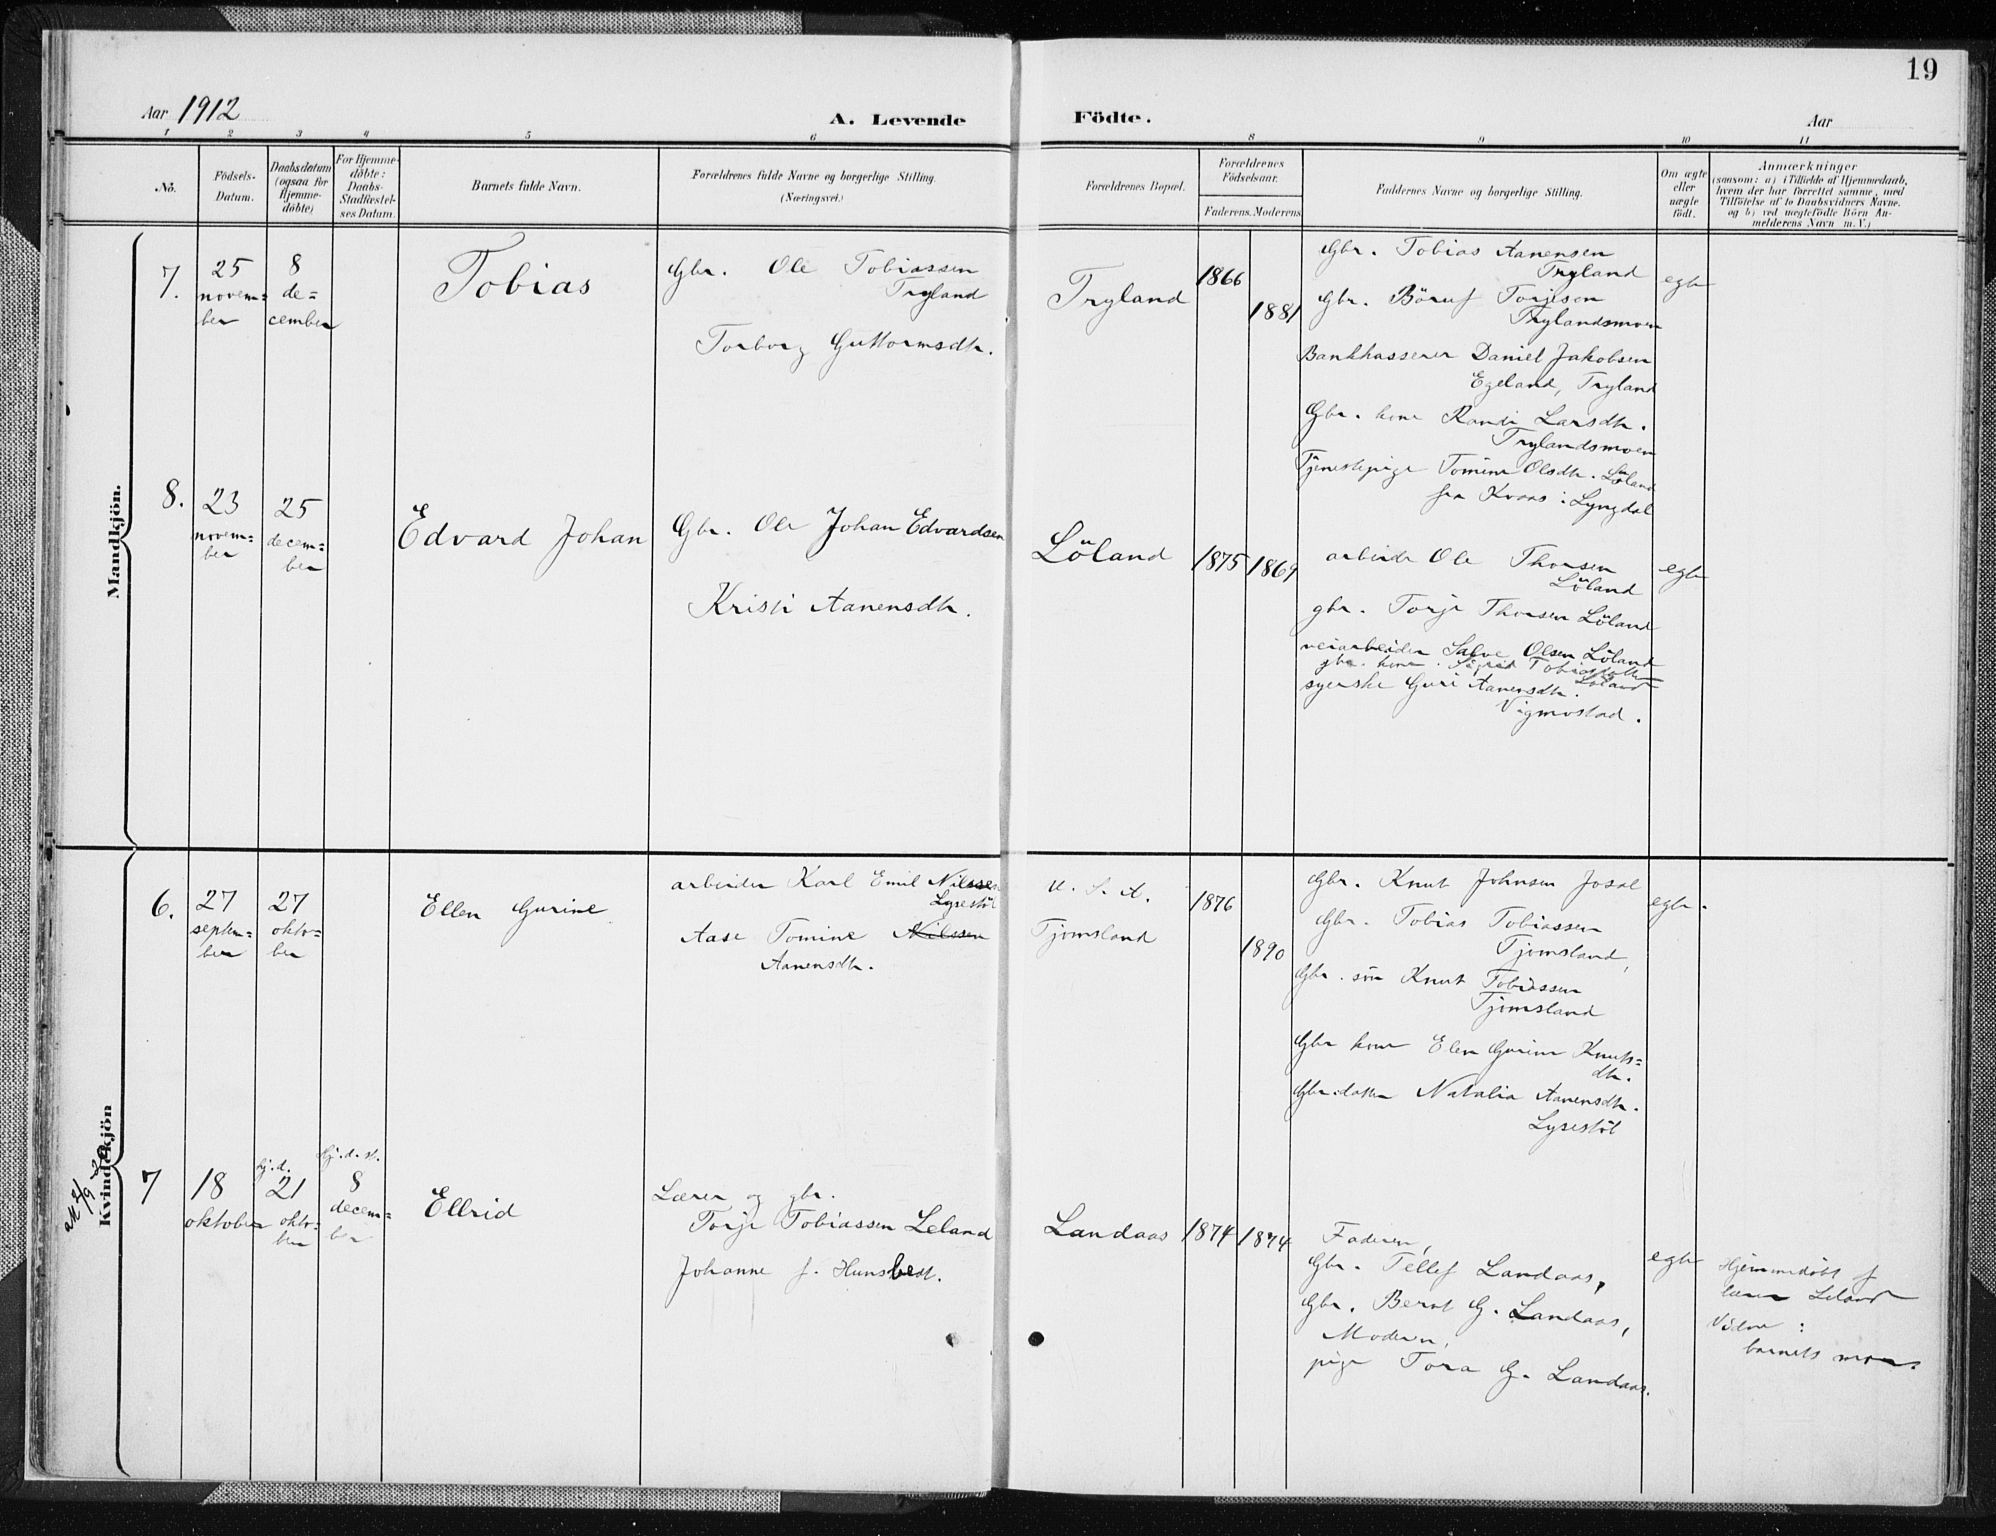 19
Aar 1912
A. Levende Födte.
Aar
1 2 3 4 5 6 8 9 10 11
No.
Födsels-
Datum.
Daabsdatum
(ogsaa for
Hjemme-
döbte)
For Hjemme-
döbte:
Daabs-
Stadfæstel-
ses Datum.
Barnets fulde Navn.
Forældrenes fulde Navne og borgerlige Stilling.
(Næringsvei.)
Forældrenes Bopæl.
Forældrenes
Födselsaar.
Faderens. Moderens.
Faddernes Navne og borgerlige Stilling.
Om ægte
eller
uægte
födt.
Anmærkninger
(saasom: a) i Tilfælde af Hjemmedaab,
hvem der har forrettet samme, med
Tilföielse af to Daabsvidners Navne.
og b) ved uægtefödte Börn An-
melderens Navn m. V.)
Mandkjön.
7.
25
novem=
ber
8
de=
cember
Tobias
Gbr. Ole Tobiassen
Tryland
Torborg Guttormsdtr.
Tryland
1866
1881
Gbr. Tobias Aanensen
Tryland
Gbr. Böruf Torjesen
Trylandsmoen
Bankkasserer Daniel Jakobsen
Egeland, Tryland
Gbr. kone Randi Larsdtr.
Trylandsmoen
Tjenestepige Tomine Olsdtr. Löland
fra Kvaas i Lyngdal
egte
8.
23
novem=
ber
25
decem=
ber
Edvard Johan
Gbr. Ole Johan Edvardsen
Kristi Aanensdtr.
Löland
1875
1869
arbeider Ole Thorsen
Löland
gbr. Torje Thorsen Löland
veiarbeider Salve Olsen Löland
gbr. kone. Sigrid Tobiasdatter
Löland
syerske Guri Aanensdtr.
Vigmostad.
egte
Kvindekjön
6.
27
septem=
ber
27
okto=
ber
Ellen Gurine
arbeider Karl Emil Nilssen
Lysestöl
Aase Tomine Nilssen
Aanensdtr.
U. S. A.
Tjomsland
1876
1890
Gbr. Knut Johnsen Josal
Gbr. Tobias Tobiassen
Tjomsland,
Gbr. sön Knut Tobiassen
Tjomsland
Gbr kone Elen Gurine Knuts=
dtr.
Gbr. datter Natalia Aanensdtr.
Lysestöl
egte.
7
18
oktober
hj. d.
21
okto=
ber
hj. d. st.
8
decem=
ber
Ellrid
Lærer og gbr.
Torje Tobiassen Leland
Johanne f. Hunsbedt.
Landaas
1874
1874
Faderen,
Gbr. Tellef Landaas,
Gbr. Bernt G. Landaas,
Moderen,
pige Tora G. Landaas.
egte
Hjemmedöbt af
lærer Leland
Vidne:
barnets mor